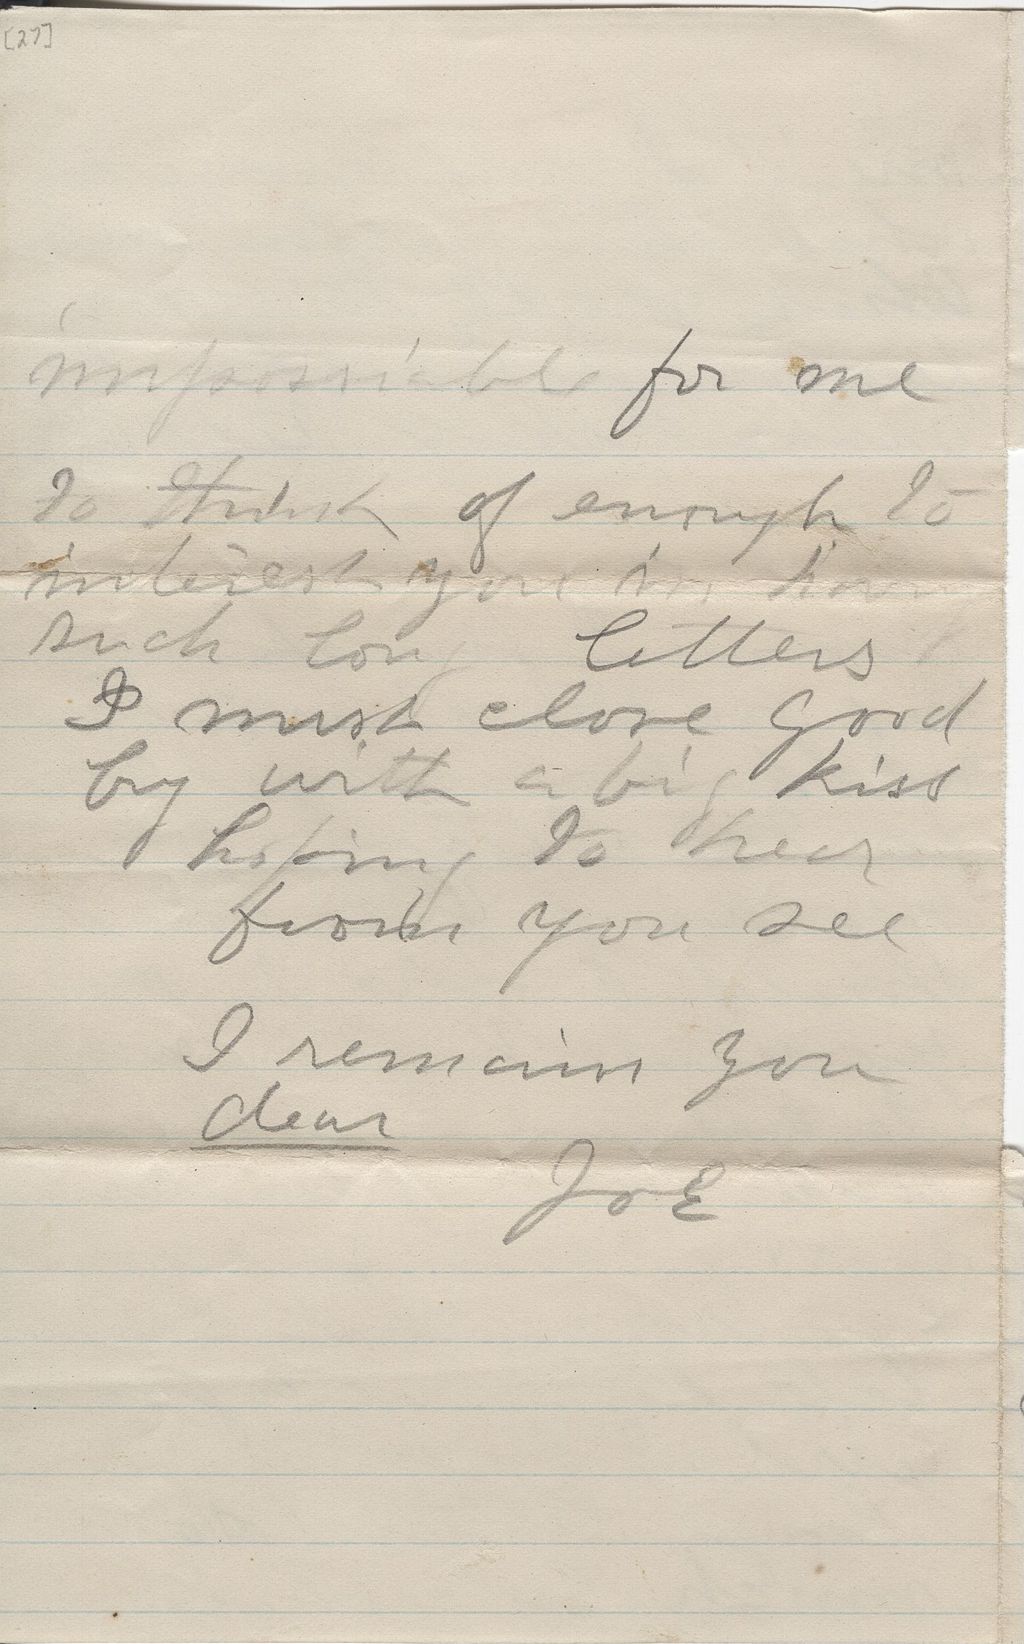 [27]
impossiable for me
to think of enough to
interest you in
such long letters
I must close Good
by with a big kiss
hoping to hear
from you see
I remain you
dear
JoE